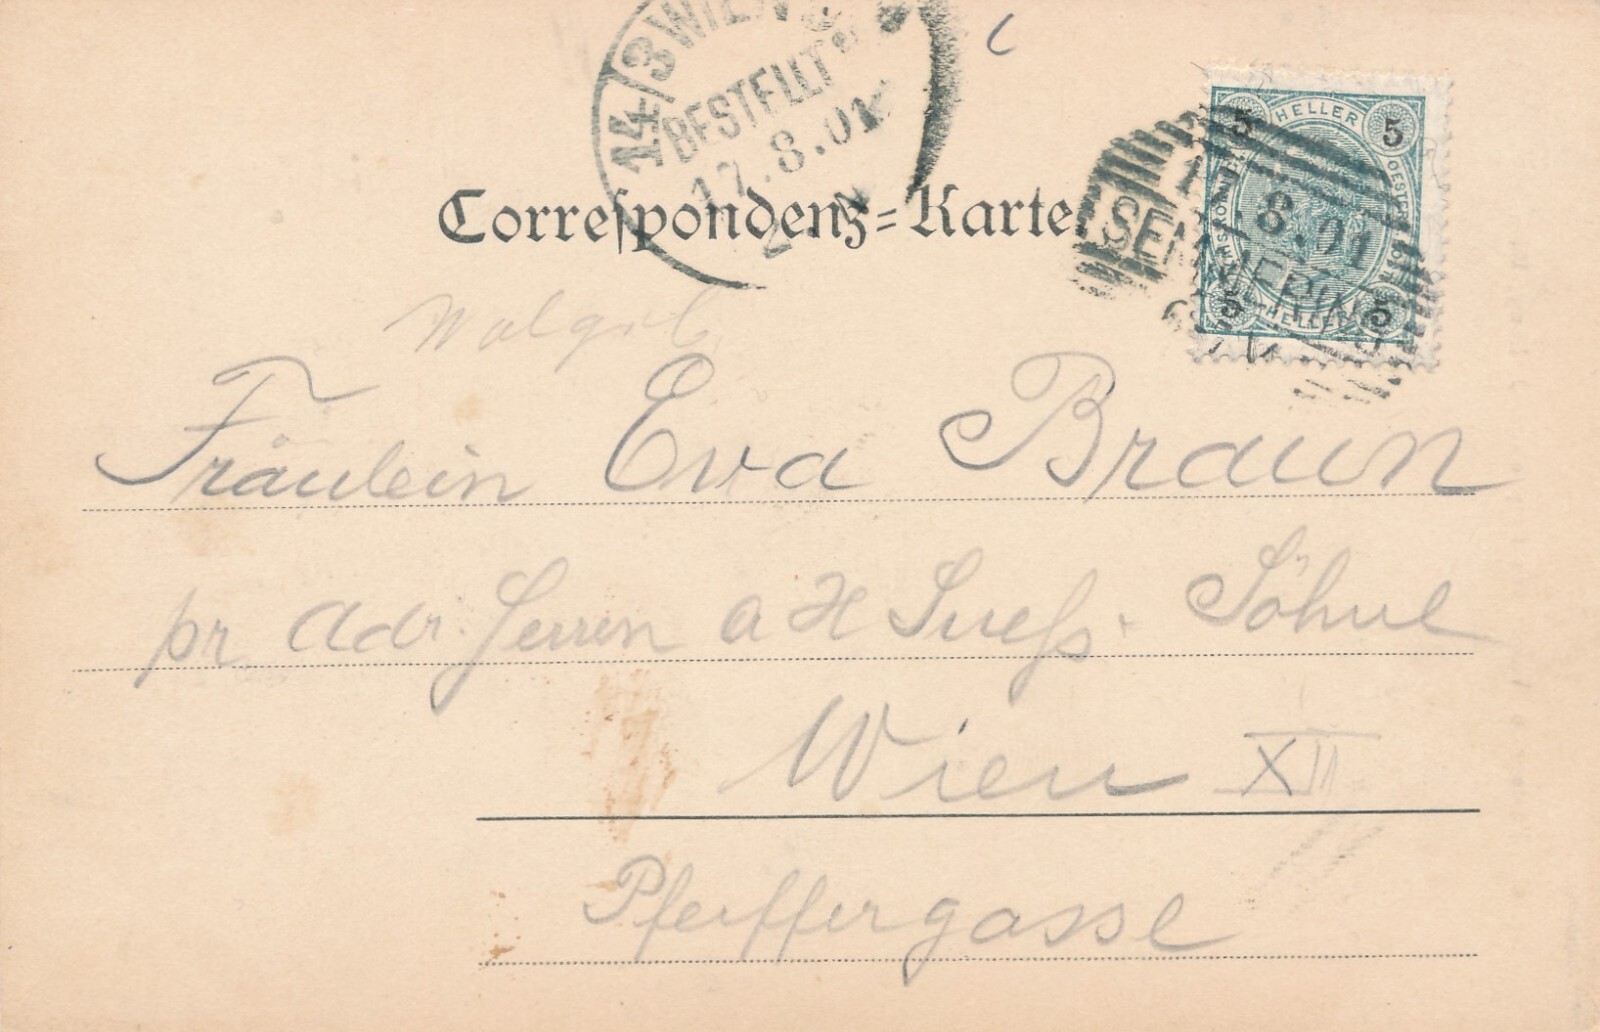 14/3 WIEN
BESTELLT
17.8.01
Correspondenz=Karte
5 HELLER 5
5 HELLER 5
8.01
SEMMERING
Fräulein Eva Braun
pr Adr. Herren A H Suess Söhne
Wien XII
Pfeiffergasse